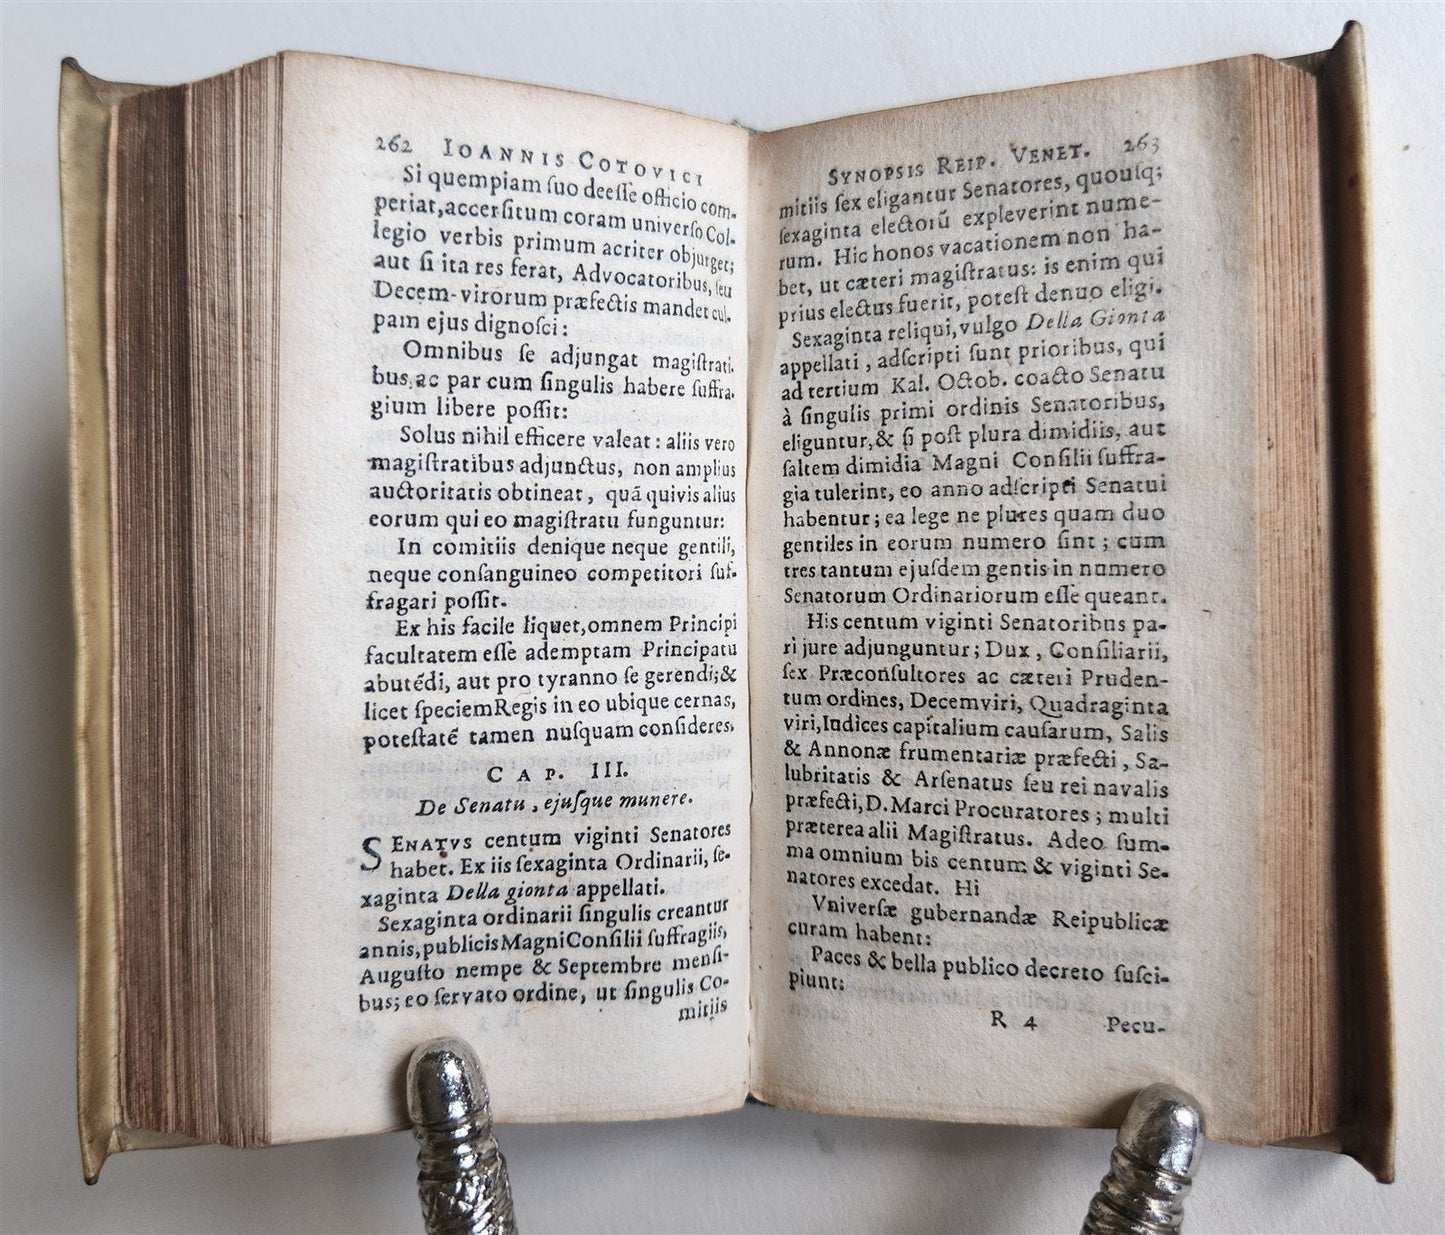 262 IOANNIS COTOVICI
Si quempiam ſuo deeſſe officio com-
periat, accerſitum coram univerſo Col-
legio verbis primum acriter objurget;
aut ſi ita res ferat, Advocatoribus, ſeu
Decem-virorum præfectis mandet cul-
pam ejus dignoſci:
Omnibus ſe adjungat magiſtrati-
bus, ac par cum ſingulis habere ſuffra-
gium libere poſſit:
Solus nihil efficere valeat: aliis vero
magiſtratibus adjunctus, non amplius
auctoritatis obtineat, quã quivis alius
eorum qui eo magiſtratu funguntur:
In comitiis denique neque gentili,
neque conſanguineo competitori ſuf-
fragari poſſit.
Ex his facile liquet, omnem Principi
facultatem eſſe ademptam Principatu
abutẽdi, aut pro tyranno ſe gerendi; &
licet ſpeciem Regis in eo ubique cernas,
poteſtatẽ tamen nuſquam conſideres.
CAP. III.
De Senatu, ejuſque munere.
SENATVS centum viginti Senatores
habet. Ex iis ſexaginta Ordinarii, ſe-
xaginta Della gionta appellati.
Sexaginta ordinarii ſingulis creantur
annis, publicis Magni Conſilii ſuffragiis,
Auguſto nempe & Septembre menſi-
bus; eo ſervato ordine, ut ſingulis Co-
mitiis
SYNOPSIS REIP. VENET. 263
mitiis ſex eligantur Senatores, quouſq;
ſexaginta electorũ expleverint nume-
rum. Hic honos vacationem non ha-
bet, ut cæteri magiſtratus: is enim qui
prius electus fuerit, poteſt denuo eligi.
Sexaginta reliqui, vulgo Della Gionta
appellati, adſcripti ſunt prioribus, qui
ad tertium Kal. Octob. coacto Senatu
à ſingulis primi ordinis Senatoribus,
eliguntur, & ſi poſt plura dimidiis, aut
ſaltem dimidia Magni Conſilii ſuffra-
gia tulerint, eo anno adſcripti Senatui
habentur; ea lege ne plures quam duo
gentiles in eorum numero ſint; cum
tres tantum ejuſdem gentis in numero
Senatorum Ordinariorum eſſe queant.
His centum viginti Senatoribus pa-
ri jure adjunguntur; Dux, Conſiliarii,
ſex Præconſultores ac cæteri Pruden-
tum ordines, Decemviri, Quadraginta
viri, Iudices capitalium cauſarum, Salis
& Annonæ frumentariæ præfecti, Sa-
lubritatis & Arſenatus ſeu rei navalis
præfecti, D. Marci Procuratores; multi
præterea alii Magiſtratus. Adeo ſum-
ma omnium bis centum & viginti Se-
natores excedat. Hi
Vniverſæ gubernandæ Reipublicæ
curam habent:
Paces & bella publico decreto ſuſci-
piunt:
R 4 Pecu-